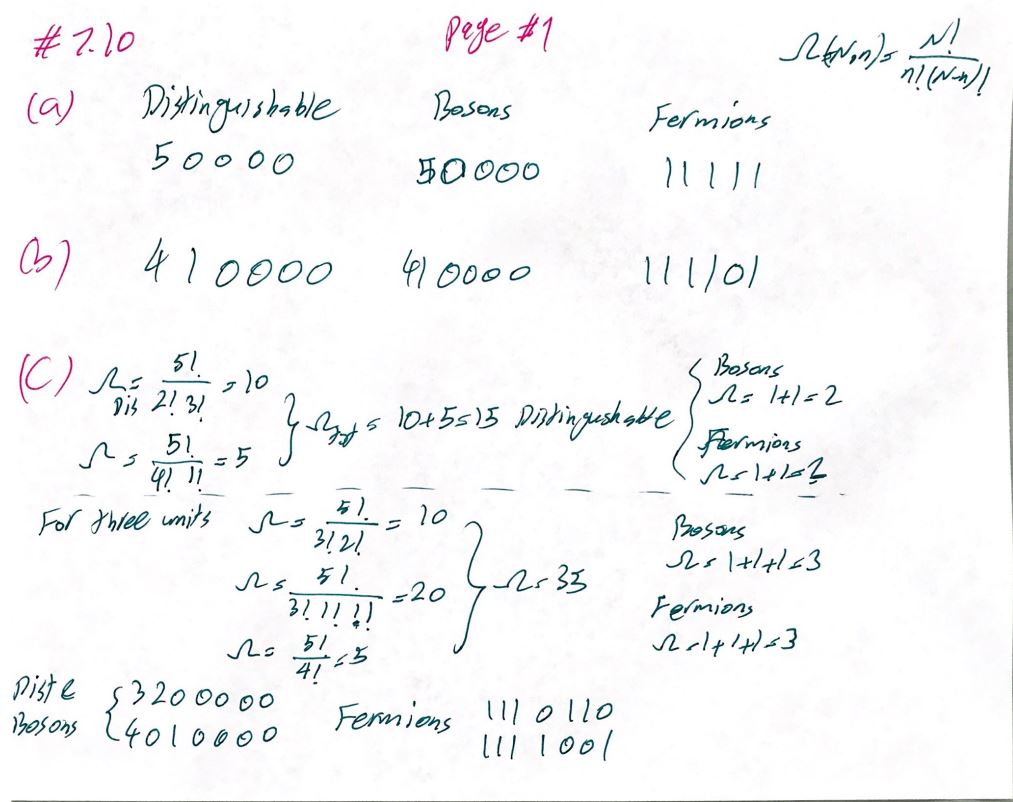 # 7.10 Page #1 Ω(N,n) = N! / n!(N-n)!
(a) Distinguishable Bosons Fermions
5 0 0 0 0 5 0 0 0 0 1 1 1 1 1
(b) 4 1 0 0 0 0 4 1 0 0 0 0 1 1 1 1 0 1
(C) Ω Dis = 5! / 2! 3! = 10
Ω = 5! / 4! 1! = 5
Ω = 10+5=15 Distinguishable
Bosons
Ω = 1+1 = 2
Fermions
Ω = 1+1 = 2
For three units Ω = 5! / 3! 2! = 10
Ω = 5! / 3! 1! 1! = 20
Ω = 5! / 4! = 5
Ω = 35
Bosons
Ω = 1+1+1 = 3
Fermions
Ω = 1+1+1 = 3
Diste { 3 2 0 0 0 0 0
Bosons 4 0 1 0 0 0 0
Fermions 1 1 1 0 1 1 0
1 1 1 1 0 0 1